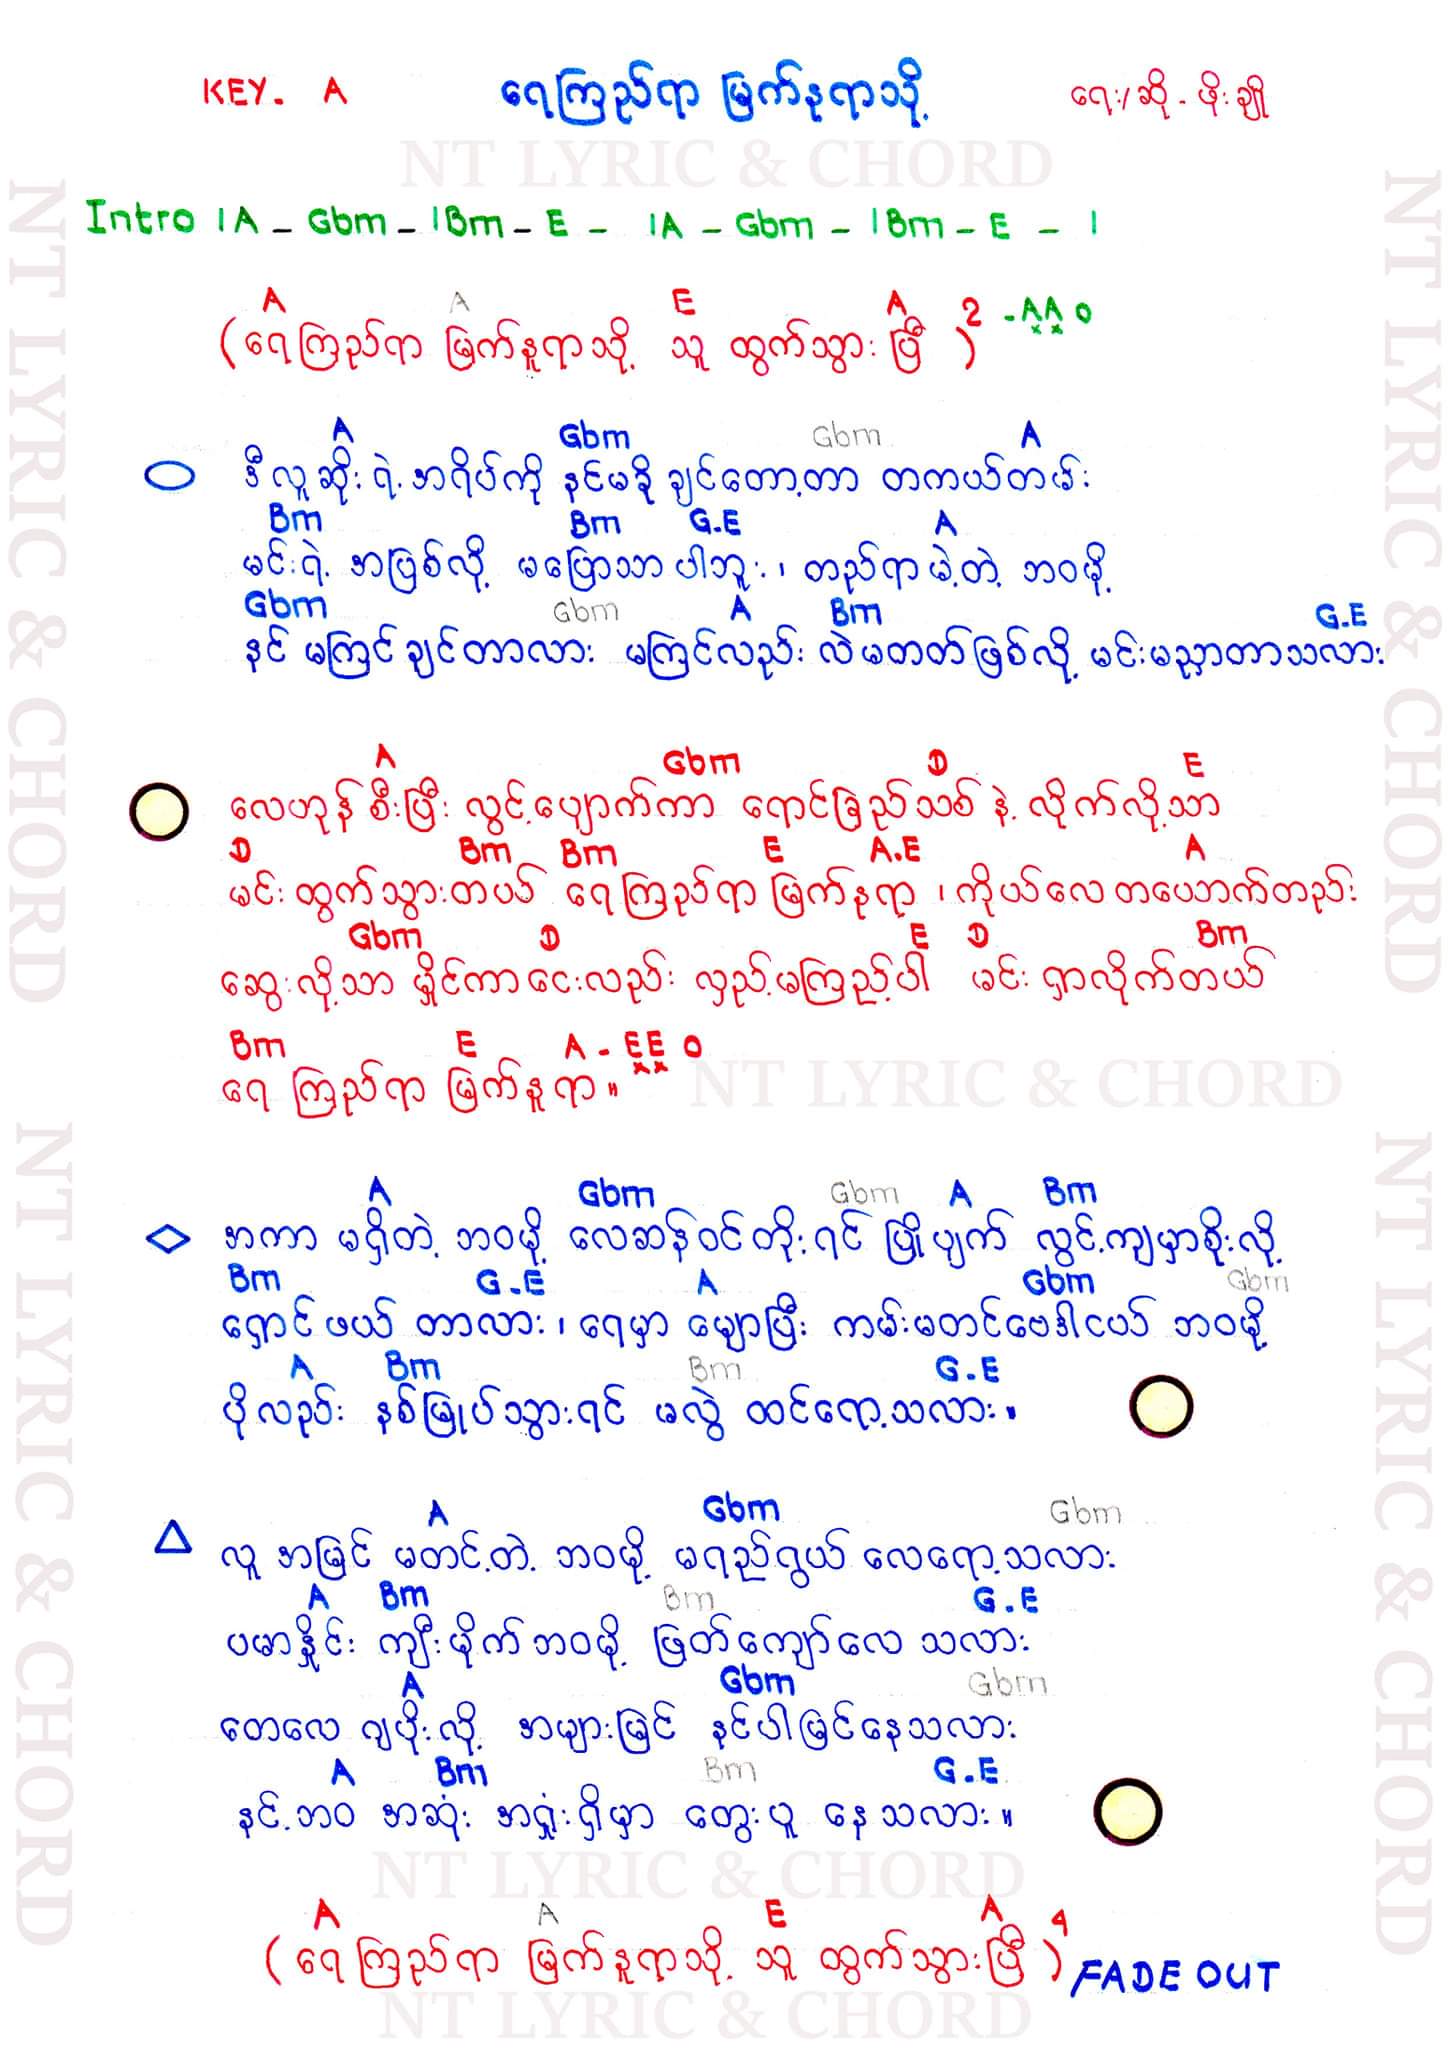 KEY. A ရေကြည်ရာ မြက်နုရာသို့ ရေး/ဆို - ဖိုးချို
NT LYRIC & CHORD
Intro | A - Gbm - | Bm - E - | A - Gbm - | Bm - E - |
A A E A 2 - AA 0
(ရေကြည်ရာ မြက်နုရာသို့ သူ ထွက်သွားပြီ)
A Gbm Gbm A
ဒီလူဆိုးရဲ့အရိပ်ကို နင်မခို ချင်တော့တာ တကယ်တမ်း
Bm Bm G.E A
မင်းရဲ့ အပြစ်လို့ မပြောသာပါဘူး၊ တည်ရာမဲ့တဲ့ ဘဝမို့
Gbm Gbm A Bm G.E
နင် မကြင်ချင်တာလား မကြင်လည်း လဲမတတ်ဖြစ်လို့ မင်းမညှာတာသလား
A Gbm D E
လေဟုန်စီးပြီး လွင့်ပျောက်ကာ ရောင်ခြည်သစ်နဲ့ လိုက်လို့သာ
D Bm Bm E A.E A
မင်းထွက်သွားတယ် ရေကြည်ရာ မြက်နုရာ ၊ ကိုယ်လေ တယောက်တည်း
Gbm D E D Bm
ဆွေးလို့သာ မှိုင်ကာငေးလည်း လှည့်မကြည့်ပါ မင်း ရှာလိုက်တယ်
Bm E A - EE 0
ရေ ကြည်ရာ မြက်နုရာ။
NT LYRIC & CHORD
A Gbm Gbm A Bm
အကာ မရှိတဲ့ ဘဝမို့ လေဆန်ဝင်တိုးရင် ပြိုပျက် လွင့်ကျမှာစိုးလို့
Bm G.E A Gbm Gbm
ရှောင်ဖယ် တာလား၊ ရေမှာ မျောပြီး ကမ်းမတင်ဗေဒါငယ် ဘဝမို့
A Bm Bm G.E
ပိုလည်း နစ်မြုပ်သွားရင် မလွဲ ထင်ရော့သလား။
A Gbm Gbm
လူ အမြင် မတင့်တဲ့ ဘဝမို့ မရည်ရွယ် လေရော့သလား
A Bm Bm G.E
ပမာနှိုင်း ကျီးမိုက်ဘဝမို့ ဖြတ်ကျော်လေ သလား
A Gbm Gbm
တေလေ ဂျပိုးလို့ အများမြင် နင်ပါမြင်နေသလား
A Bm Bm G.E
နင့်ဘဝ အဆုံး အရှုံးရှိမှာ တွေးပူ နေသလား။
NT LYRIC & CHORD
A A E A 4
(ရေကြည်ရာ မြက်နုရာသို့ သူ ထွက်သွားပြီ) FADE OUT
NT LYRIC & CHORD
NT LYRIC & CHORD
NT LYRIC & CHORD
NT LYRIC & CHORD
NT LYRIC & CHORD